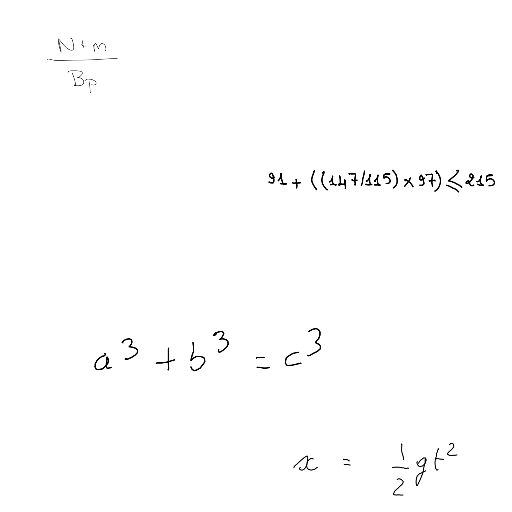 N+m
Bp
91 + ((147/115) × 97) ⩽ 215
a³ + b³ = c³
x = 1/2 gt²